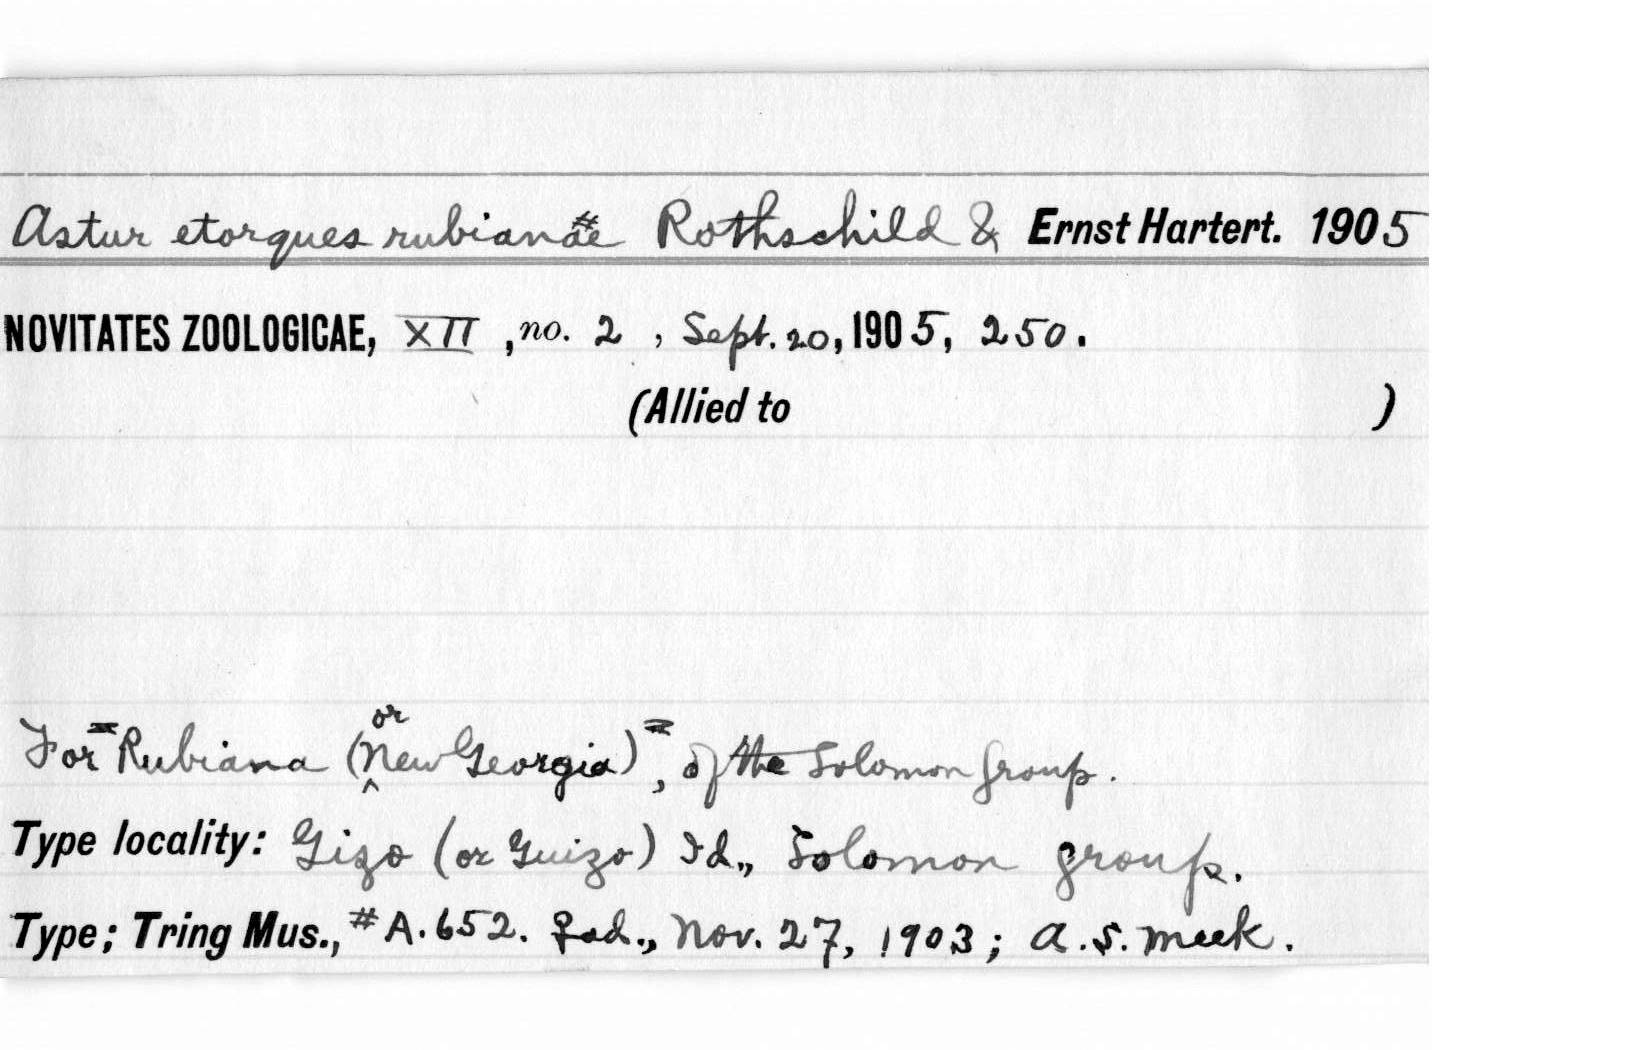 Astur etorques rubianae # Rothschild & Ernst Hartert. 1905
NOVITATES ZOOLOGICAE, XII, no. 2, Sept. 20, 1905, 250.
(Allied to )
For = Rubiana (or New Georgia) =, of the Solomon group.
Type locality: Gizo (or Guizo) Id., Solomon group.
Type; Tring Mus., #A.652. ♀ad., Nov. 27, 1903; A.S. Meek.